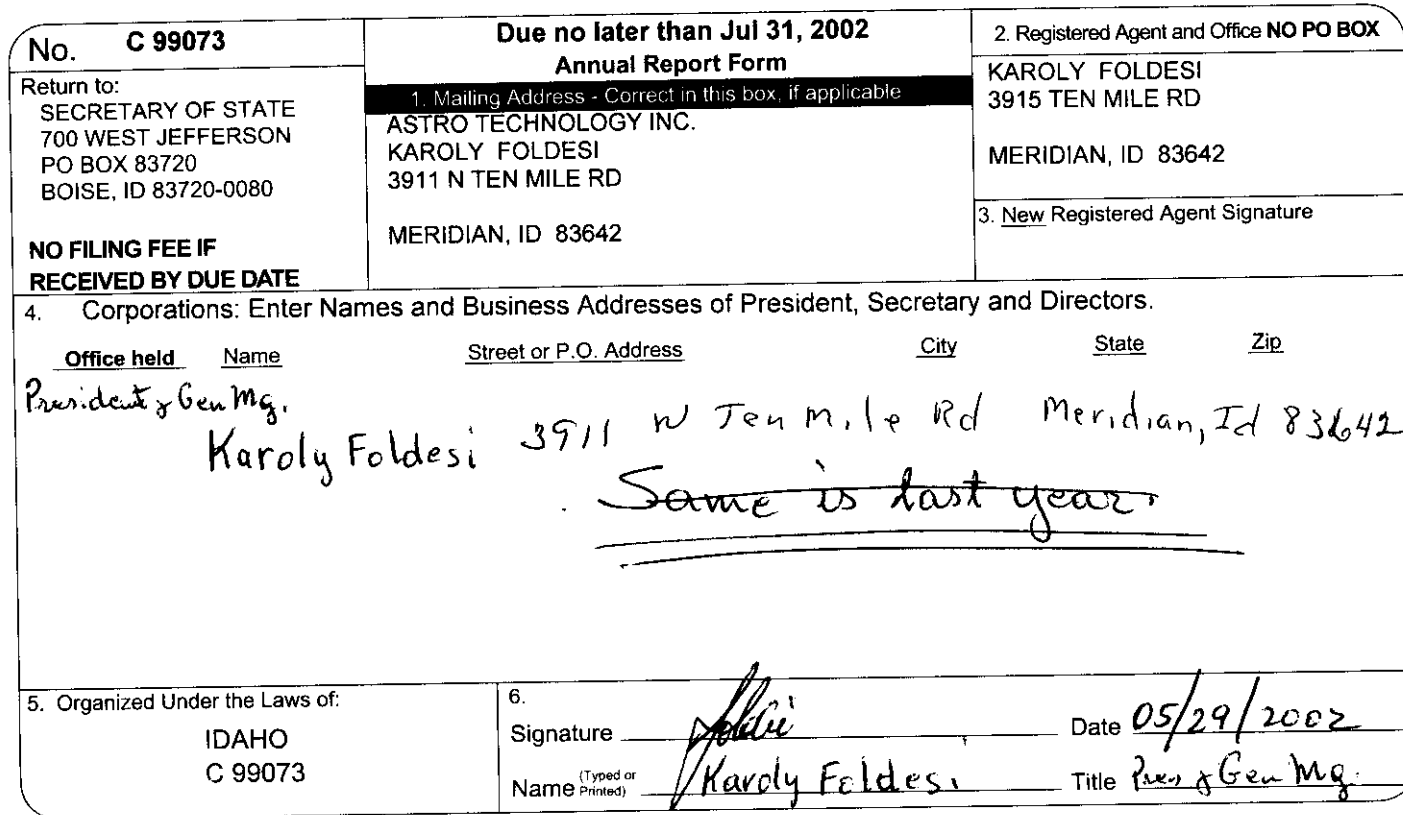 No. C 99073
Return to:
SECRETARY OF STATE
700 WEST JEFFERSON
PO BOX 83720
BOISE, ID 83720-0080
NO FILING FEE IF
RECEIVED BY DUE DATE
Due no later than Jul 31, 2002
Annual Report Form
1. Mailing Address - Correct in this box, if applicable
ASTRO TECHNOLOGY INC.
KAROLY FOLDESI
3911 N TEN MILE RD
MERIDIAN, ID 83642
2. Registered Agent and Office NO PO BOX
KAROLY FOLDESI
3915 TEN MILE RD
MERIDIAN, ID 83642
3. New Registered Agent Signature
4. Corporations: Enter Names and Business Addresses of President, Secretary and Directors.
Office held Name Street or P.O. Address City State Zip
President & Gen Mg.
Karoly Foldesi 3911 N Ten Mile Rd Meridian, Id 83642
Same is last year.
5. Organized Under the Laws of:
IDAHO
C 99073
6.
Signature Foldesi Date 05/29/2002
Name (Typed or Printed) Karoly Foldesi Title Pres & Gen Mg.